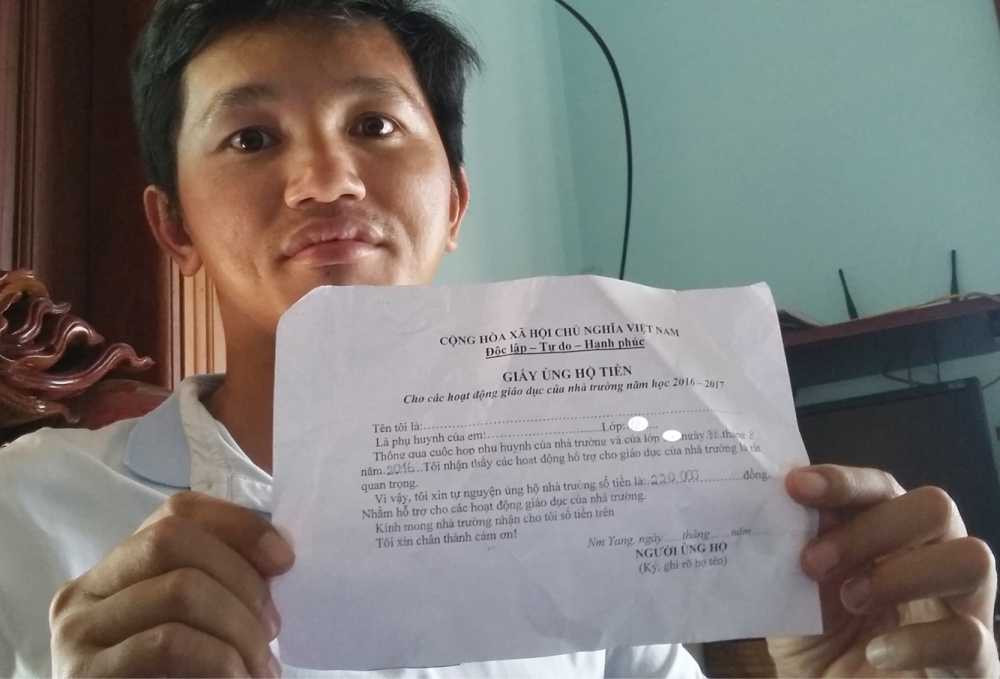 CỘNG HÒA XÃ HỘI CHỦ NGHĨA VIỆT NAM
Độc lập – Tự do – Hạnh phúc
GIẤY ỦNG HỘ TIỀN
Cho các hoạt động giáo dục của nhà trường năm học 2016 – 2017
Tên tôi là:
Là phụ huynh của em: Lớp:
Thông qua cuộc họp phụ huynh của nhà trường và của lớp ngày tháng 8
năm 2016. Tôi nhận thấy các hoạt động hỗ trợ cho giáo dục của nhà trường là rất
quan trọng.
Vì vậy, tôi xin tự nguyện ủng hộ nhà trường số tiền là: 220.000 đồng.
Nhằm hỗ trợ cho các hoạt động giáo dục của nhà trường.
Kính mong nhà trường nhận cho tôi số tiền trên
Tôi xin chân thành cám ơn!
Nm Yang, ngày tháng năm
NGƯỜI ỦNG HỘ
(Ký, ghi rõ họ tên)